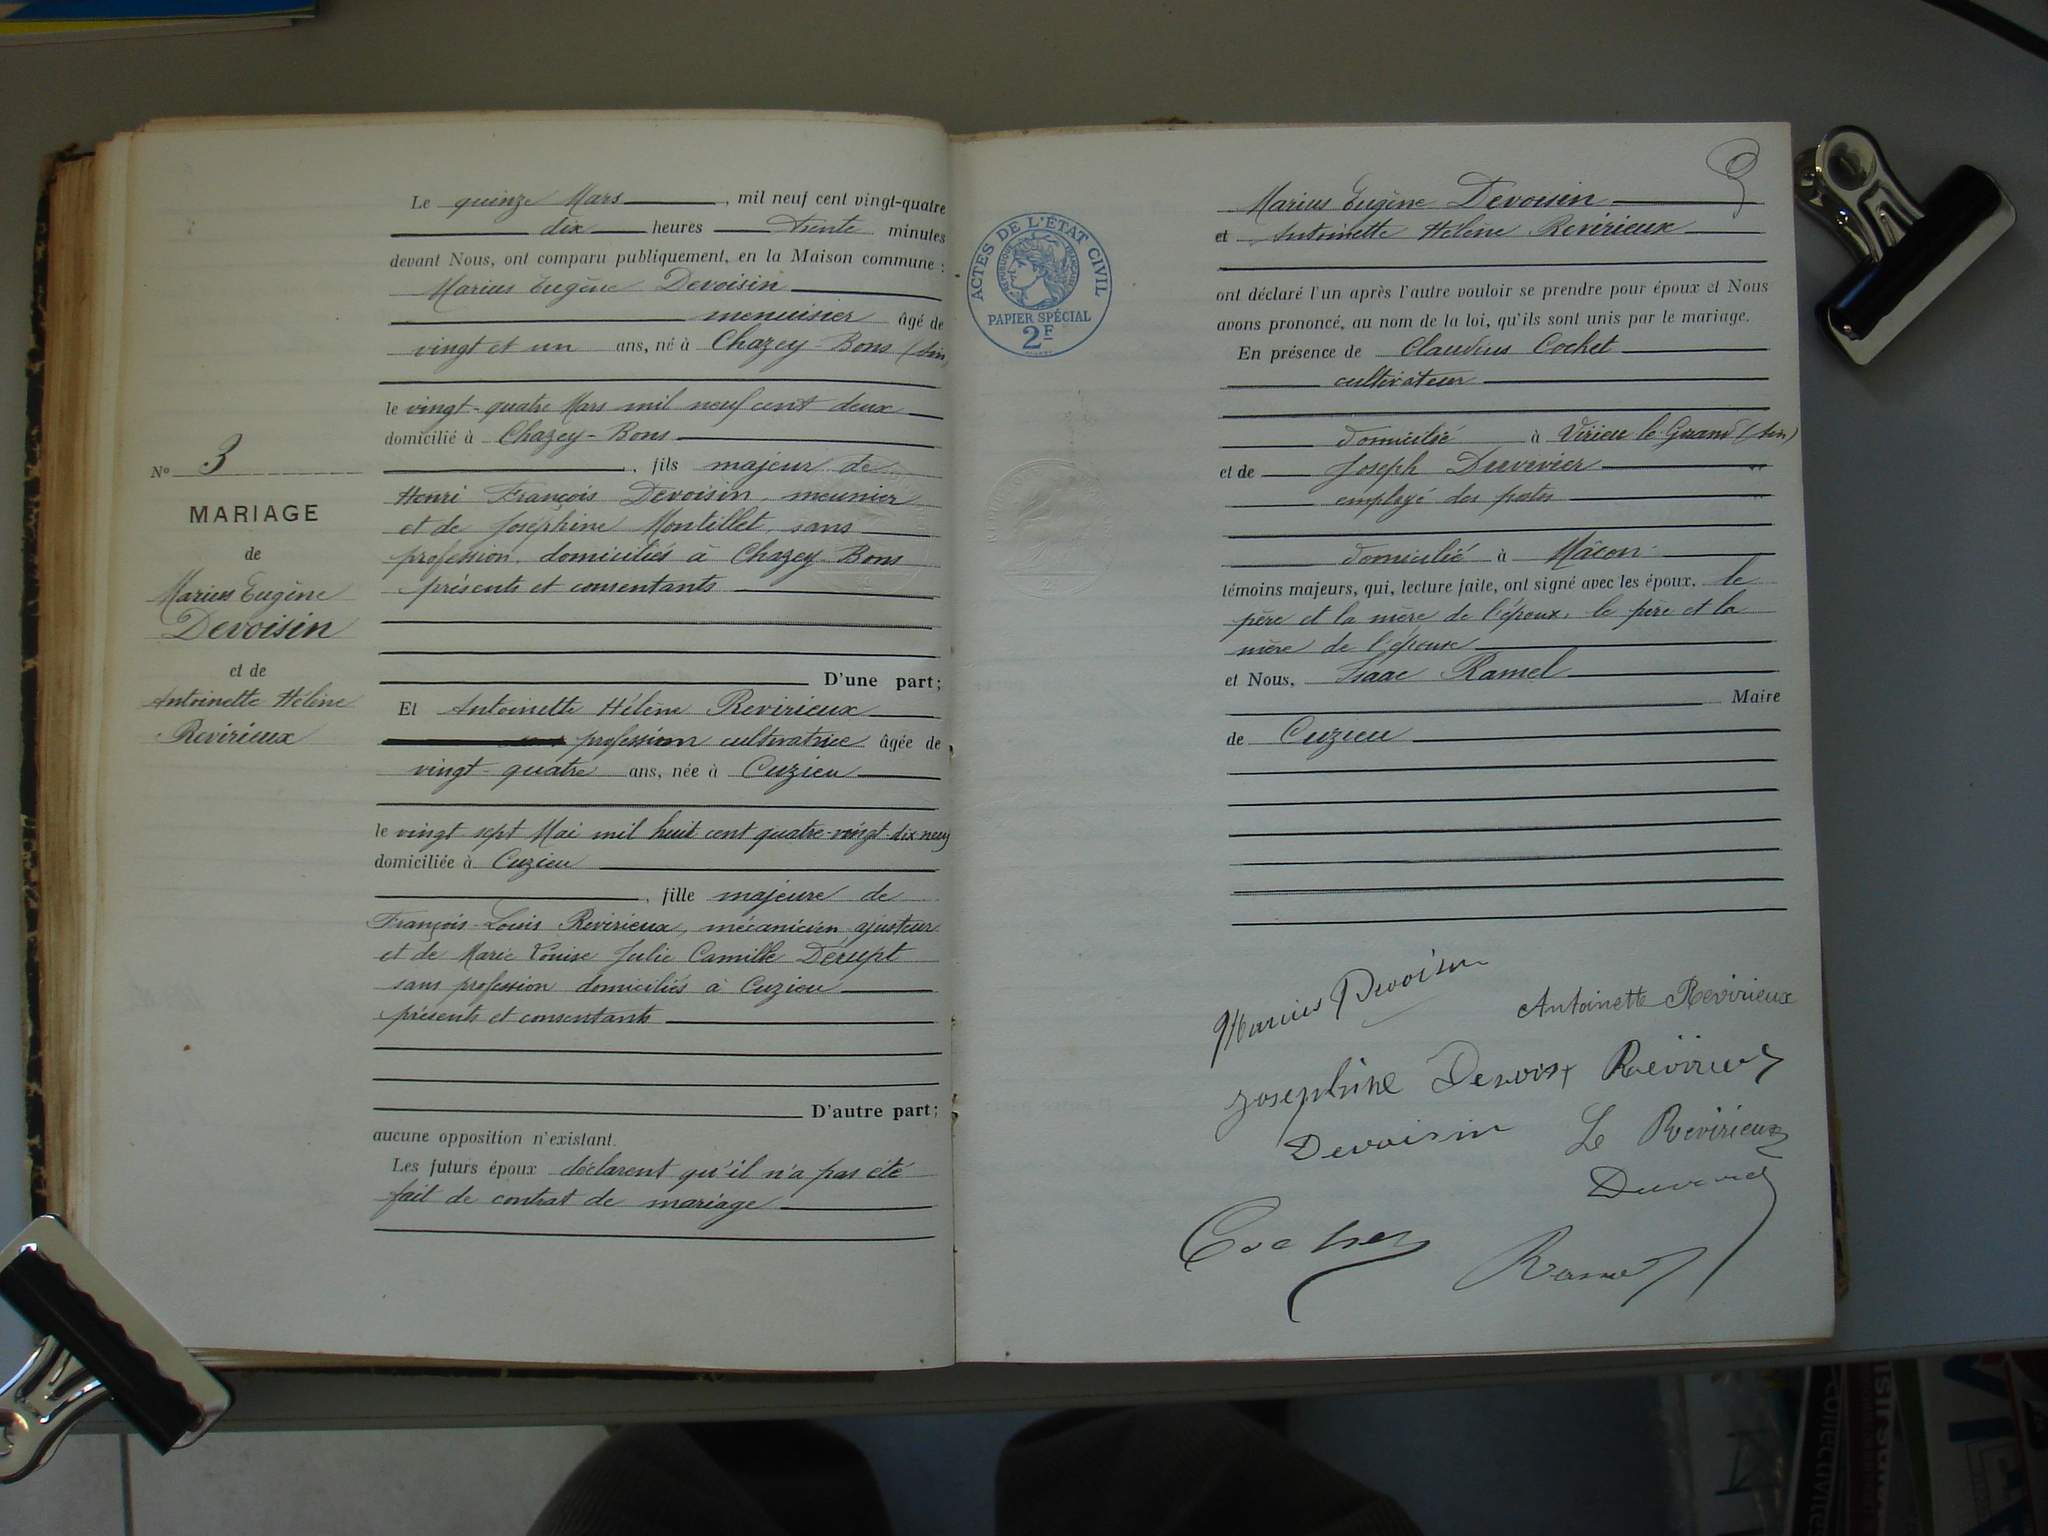 N° 3
MARIAGE
de
Marius Eugène
Devoisin
et de
Antoinette Hélène
Revirieux
Le quinze Mars, mil neuf cent vingt-quatre
dix heures trente minutes
devant Nous, ont comparu publiquement, en la Maison commune :
Marius Eugène Devoisin
menuisier âgé de
vingt et un ans, né à Chazey-Bons (Ain)
le vingt-quatre Mars mil neuf cent deux
domicilié à Chazey-Bons
, fils majeur de
Henri François Devoisin, meunier
et de Joséphine Montillet, sans
profession, domiciliés à Chazey-Bons
présents et consentants
D'une part;
Et Antoinette Hélène Revirieux
profession cultivatrice âgée de
vingt-quatre ans, née à Cuzieu
le vingt sept Mai mil huit cent quatre-vingt-dix-neuf
domiciliée à Cuzieu
, fille majeure de
François-Louis Revirieux, mécanicien ajusteur
et de Marie Louise Julie Camille Dérupt
sans profession domiciliés à Cuzieu
présents et consentants
D'autre part;
aucune opposition n'existant.
Les futurs époux déclarent qu'il n'a pas été
fait de contrat de mariage
ACTES DE L'ÉTAT CIVIL
RÉPUBLIQUE FRANÇAISE
PAPIER SPÉCIAL
2F
Marius Eugène Devoisin
et Antoinette Hélène Revirieux
ont déclaré l'un après l'autre vouloir se prendre pour époux et Nous
avons prononcé, au nom de la loi, qu'ils sont unis par le mariage.
En présence de Claudius Cochet
cultivateur
domicilié à Virieu le Grand (Ain)
et de Joseph
employé des postes
domicilié à Mâcon
témoins majeurs, qui, lecture faite, ont signé avec les époux, le
père et la mère de l'époux, le père et la
mère de l'épouse
et Nous, Isaac Ramel
Maire
de Cuzieu
Marius Devoisin
Antoinette Revirieux
Josephine Revirieux
Devoisin L Revirieux
Cochet Ramel